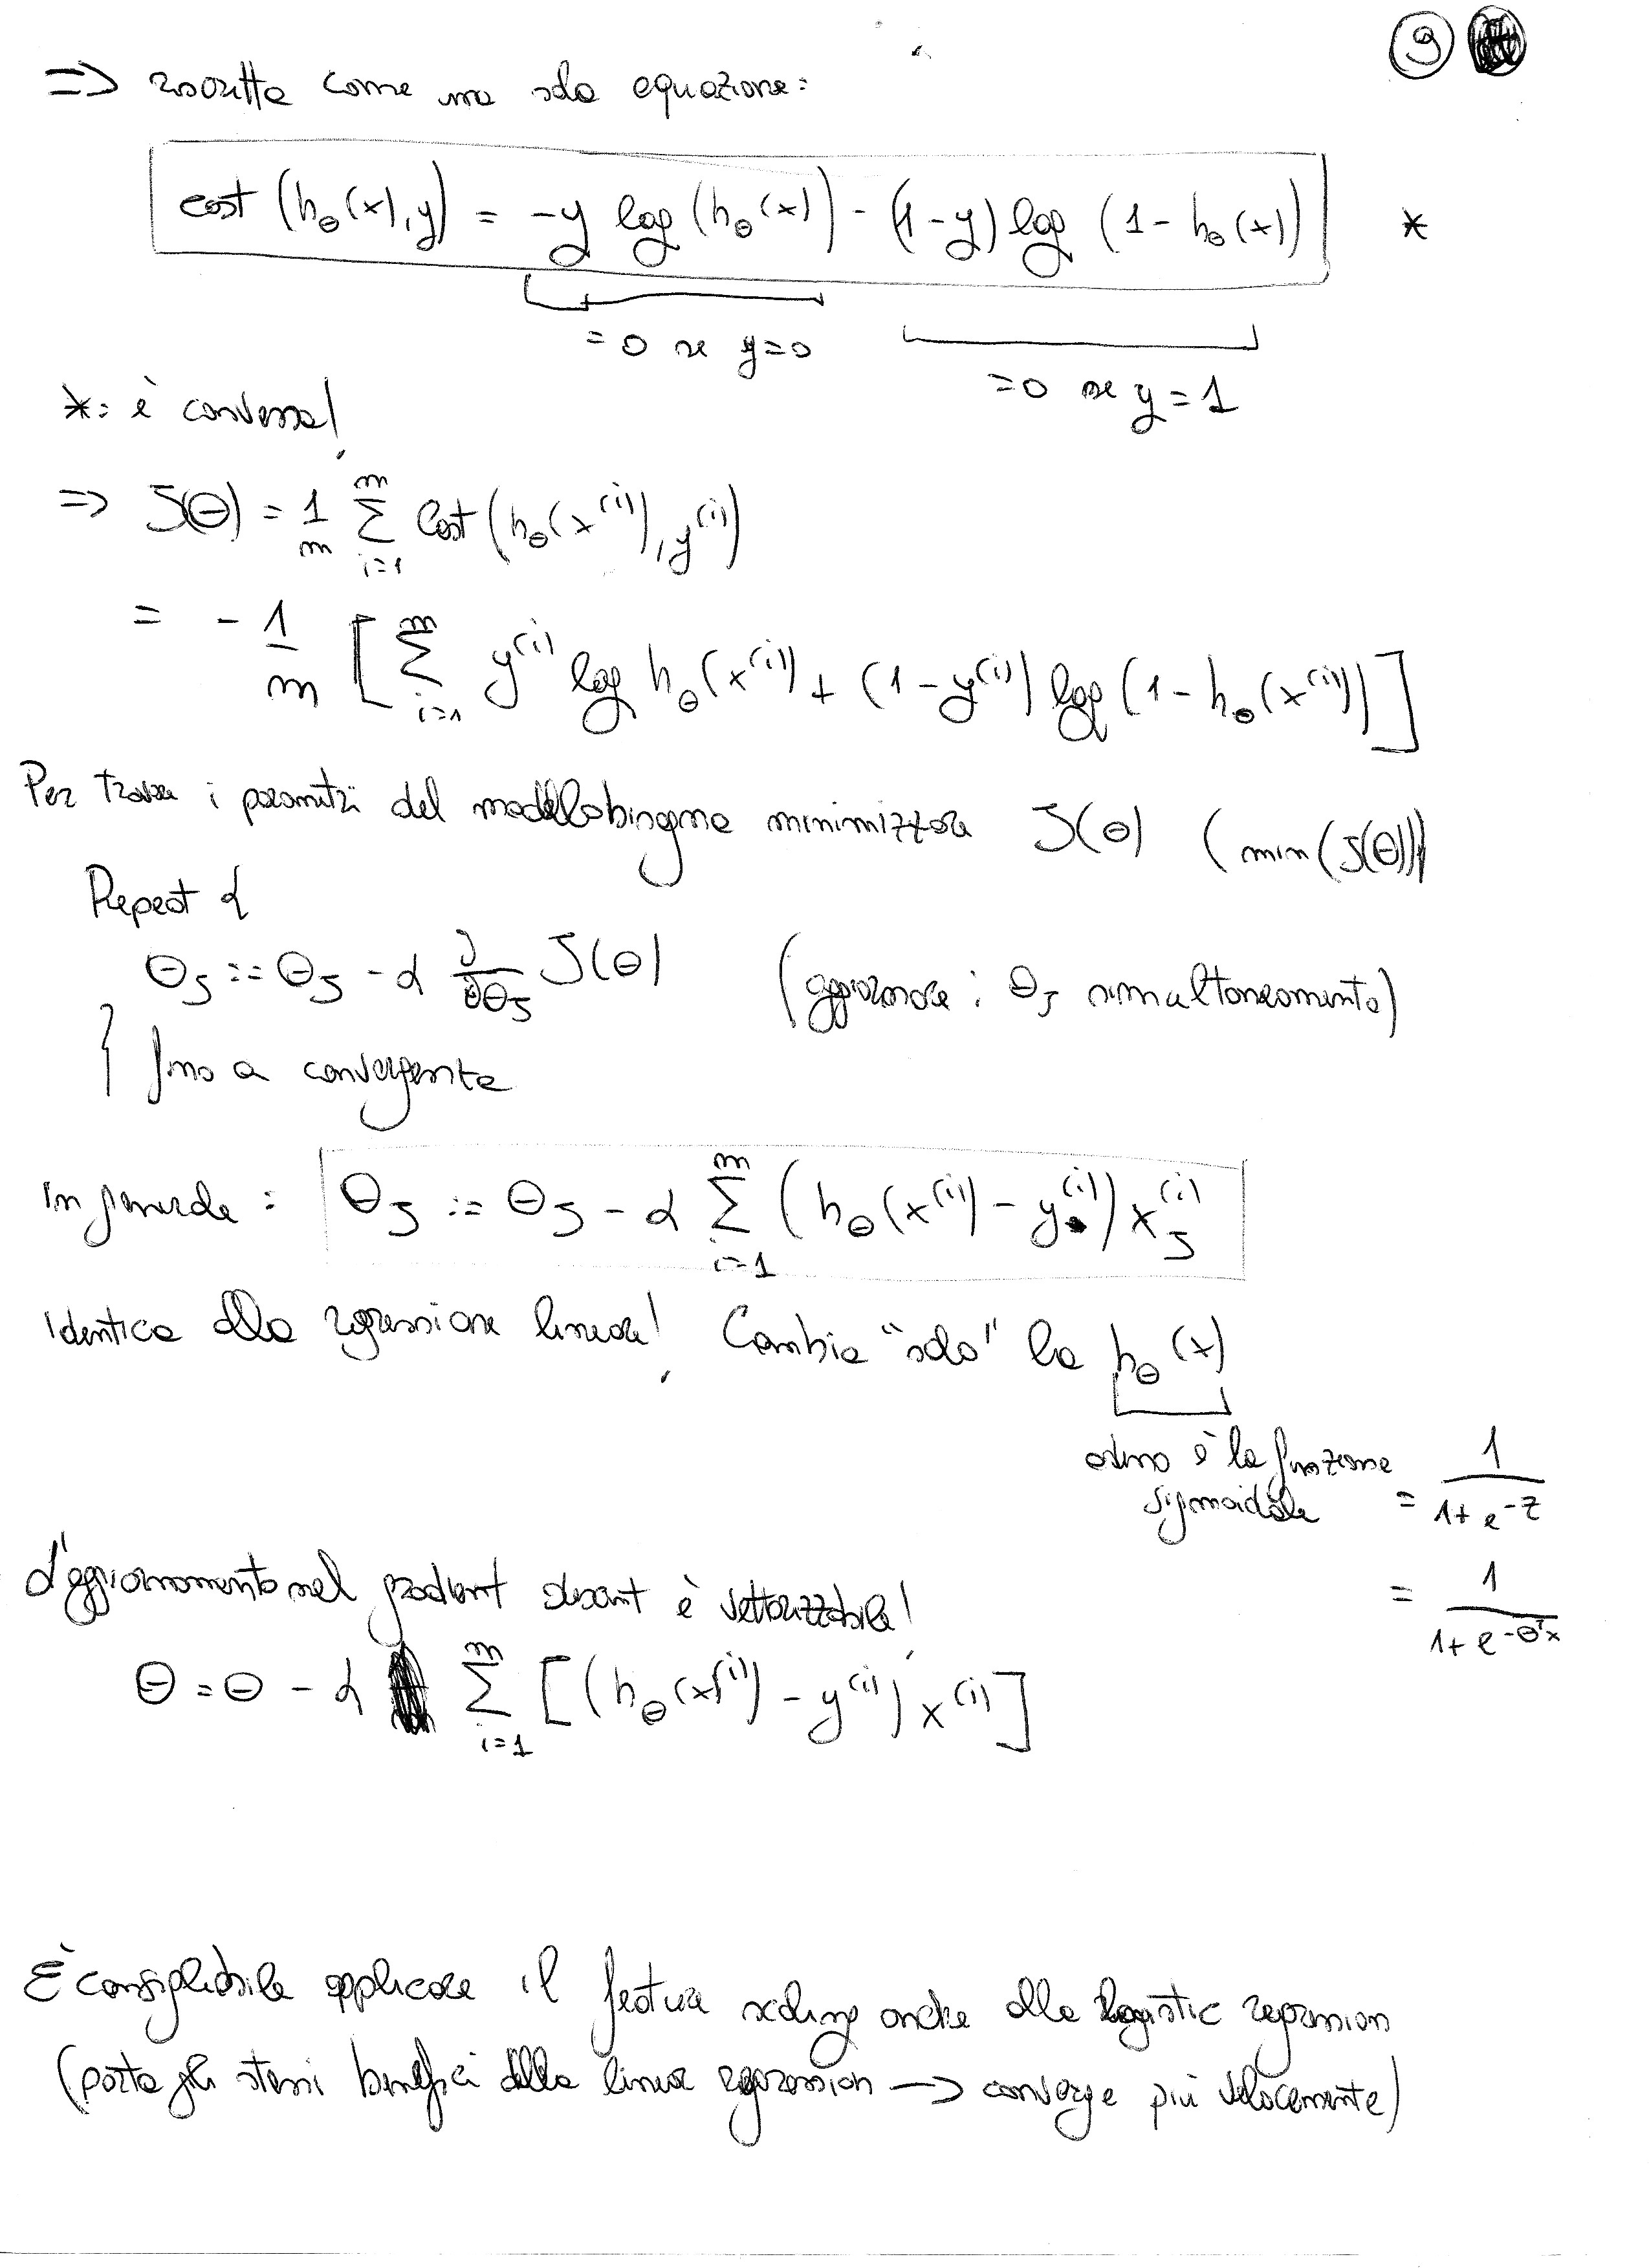 9
=> riscritta come una sola equazione:
cost (hθ(x), y) = -y log (hθ(x)) - (1-y) log (1 - hθ(x)) *
= 0 se y=0
=0 se y=1
*: è convessa!
=> J(θ) = 1/m Σ_{i=1}^{m} Cost (hθ(x^(i)), y^(i))
= - 1/m [ Σ_{i=1}^{m} y^(i) log hθ(x^(i)) + (1-y^(i)) log (1 - hθ(x^(i)) ]
Per trovare i parametri del modello bisogna minimizzare J(θ) (min(J(θ)))
Repeat {
θj := θj - α ∂/∂θj J(θ) (aggiornare i θj simultaneamente)
} fino a convergente
In generale: θj := θj - α Σ_{i=1}^{m} (hθ(x^(i)) - y^(i)) xj^(i)
Identica alla regressione lineare! Cambia "solo" la hθ(x)
adesso è la funzione
sigmoidale = 1/(1+e^-z)
= 1/(1+e^-θ^T x)
L'aggiornamento nel gradient descent è vettorizzabile!
θ = θ - α Σ_{i=1}^{m} [(hθ(x^(i)) - y^(i)) x^(i)]
È consigliabile applicare il feature scaling anche alla logistic regression
(porta gli stessi benefici della linear regression -> converge più velocemente)